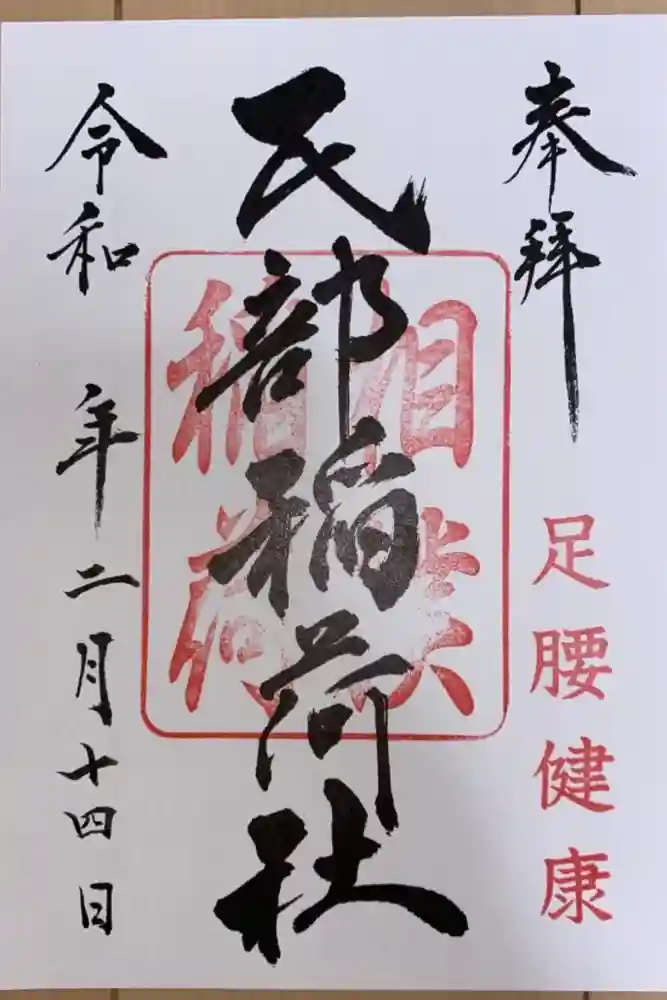 奉拝
足腰健康
民部稲荷社
相撲
稲荷
令和 年二月十四日